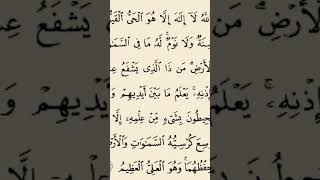 للَّهُ لَآ إِلَٰهَ إِلَّا هُوَ ٱلْحَىُّ ٱلْقَيُّ
سِنَةٌ وَلَا نَوْمٌ ۚ لَّهُۥ مَا فِى ٱلسَّمَـٰوَ
لْأَرْضِ ۗ مَن ذَا ٱلَّذِى يَشْفَعُ عِن
إِذْنِهِۦ ۚ يَعْلَمُ مَا بَيْنَ أَيْدِيهِمْ وَ
حِيطُونَ بِشَىْءٍ مِّنْ عِلْمِهِۦٓ إِلَّا
سِعَ كُرْسِيُّهُ ٱلسَّمَـٰوَٰتِ وَٱلْأَرْ
حِفْظُهُمَا ۚ وَهُوَ ٱلْعَلِىُّ ٱلْعَظِيمُ